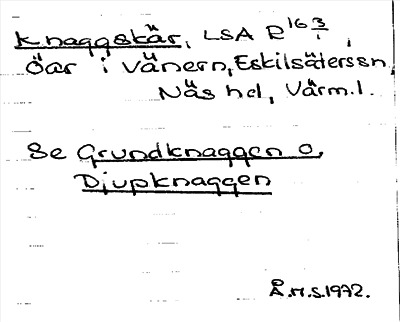 Knaggskär, LSA R 16 3/1,
öar i Vänern, Eskilsäterssn,
Näs hd, Värml.
Se Grundknaggen o.
Djupknaggen
Å.H.S. 1972.